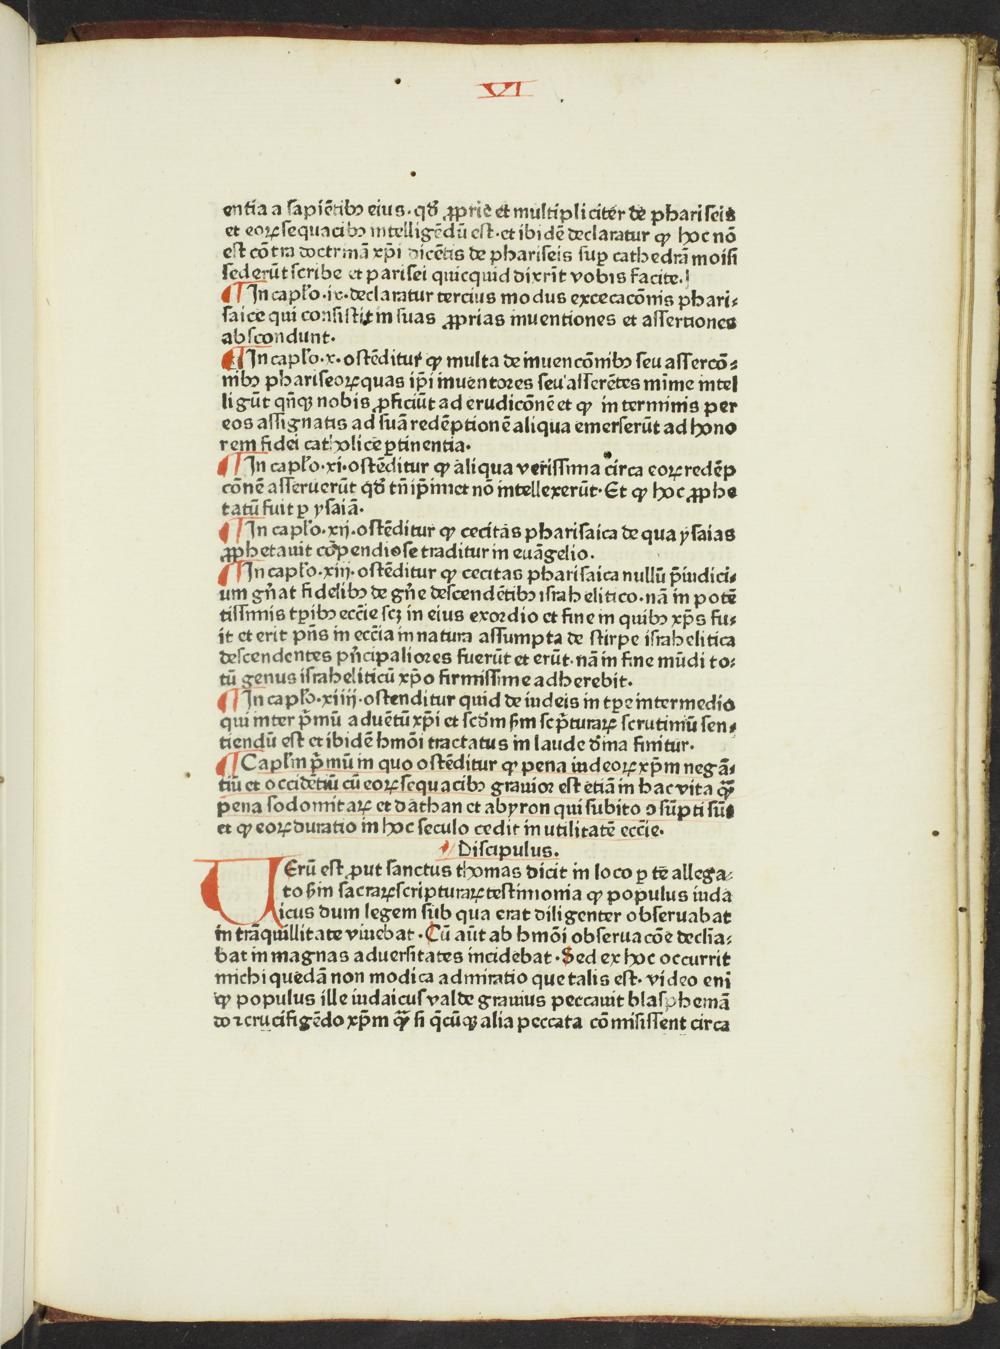 VI
entia a sapiētibꝫ eius. qđ ꝓprie et multipliciter de phariseis
et eoꝝ sequacibꝫ intelligēdū est. et ibidē declaratur ꝙ hoc nō
est cōtra doctrinā xp̄i dicētis de phariseis suꝑ cathedrā moisi
sederūt scribe et parisei quicquid dixr̄it vobis facite.
¶ In capło.ix. declaratur tercius modus excecacōnis phari⸗
saice qui consistit in suas ꝓprias inuentiones et assertiones
abscondunt.
¶ In capło.x. ostēditur ꝙ multa de inuencōnibꝫ seu assercō⸗
nibꝫ phariseoꝝ quas ip̄i inuentores seu asserētes mīme intel
ligūt qn̄qꝫ nobis ꝓficiūt ad erudicōnē et ꝙ in terminis per
eos assignatis ad suā redēptionē aliqua emerserūt ad hono
rem fidei catholice ꝑtinentia.
¶ In capło.xi. ostēditur ꝙ aliqua verissima circa eoꝝ redēp
cōnē asseruerūt qđ tn̄ ip̄imet nō intellexerūt. Et ꝙ hoc ꝓphe
tatū fuit ꝑ ysaiā.
¶ In capło.xij. ostēditur ꝙ cecitas pharisaica de qua ysaias
ꝓphetauit cōpendiose traditur in euāgelio.
¶ In capło.xiij. ostēditur ꝙ cecitas pharisaica nullū p̄iudici⸗
um gn̄at fidelibꝫ de gn̄e descendētibꝫ israhelitico. nā in potē
tissimis tꝑibꝫ ecc̄ie scꝫ in eius exordio et fine in quibꝫ xp̄s fu⸗
it et erit pn̄s in ecc̄ia in natura assumpta de stirpe israhelitica
descendentes pn̄cipaliores fuerūt et erūt. nā in fine mūdi to⸗
tū genus israheliticū xp̄o firmissime adherebit.
¶ In capło.xiiij. ostenditur quid de iudeis in tꝑe intermedio
qui inter p̄mū aduētū xp̄i et scđm s̄m sc̄pturaꝝ scrutiniū sen⸗
tiendū est et ibidē hmōi tractatus in laude diuina finitur.
¶ Caplm̄ p̄mū in quo ostēditur ꝙ pena iudeoꝝ xp̄m negā⸗
tiū et occidētiū cū eoꝝ sequacibꝫ grauior est etiā in hac vita ꝙ̄
pena sodomitaꝝ et dathan et abyron qui subito ꝯsūpti sūt
et ꝙ eoꝝ duratio in hoc seculo cedit in utilitatē ecc̄ie.
Discipulus.
UErū est ꝓut sanctus thomas dicit in loco ꝑ te allega⸗
to s̄m sacraꝝ scripturaꝝ testimonia ꝙ populus iuda
icus dum legem sub qua erat diligenter obseruabat
in trāquillitate viuebat. Cū aūt ab hmōi obseruacōe declīa⸗
bat in magnas aduersitates incidebat. Sed ex hoc occurrit
michi quedā non modica admiratio que talis est. video enī
ꝙ populus ille iudaicus valde grauius peccauit blasphemā
do ⁊ crucifigēdo xp̄m ꝙ̄ si q̄cūqꝫ alia peccata cōmisissent circa